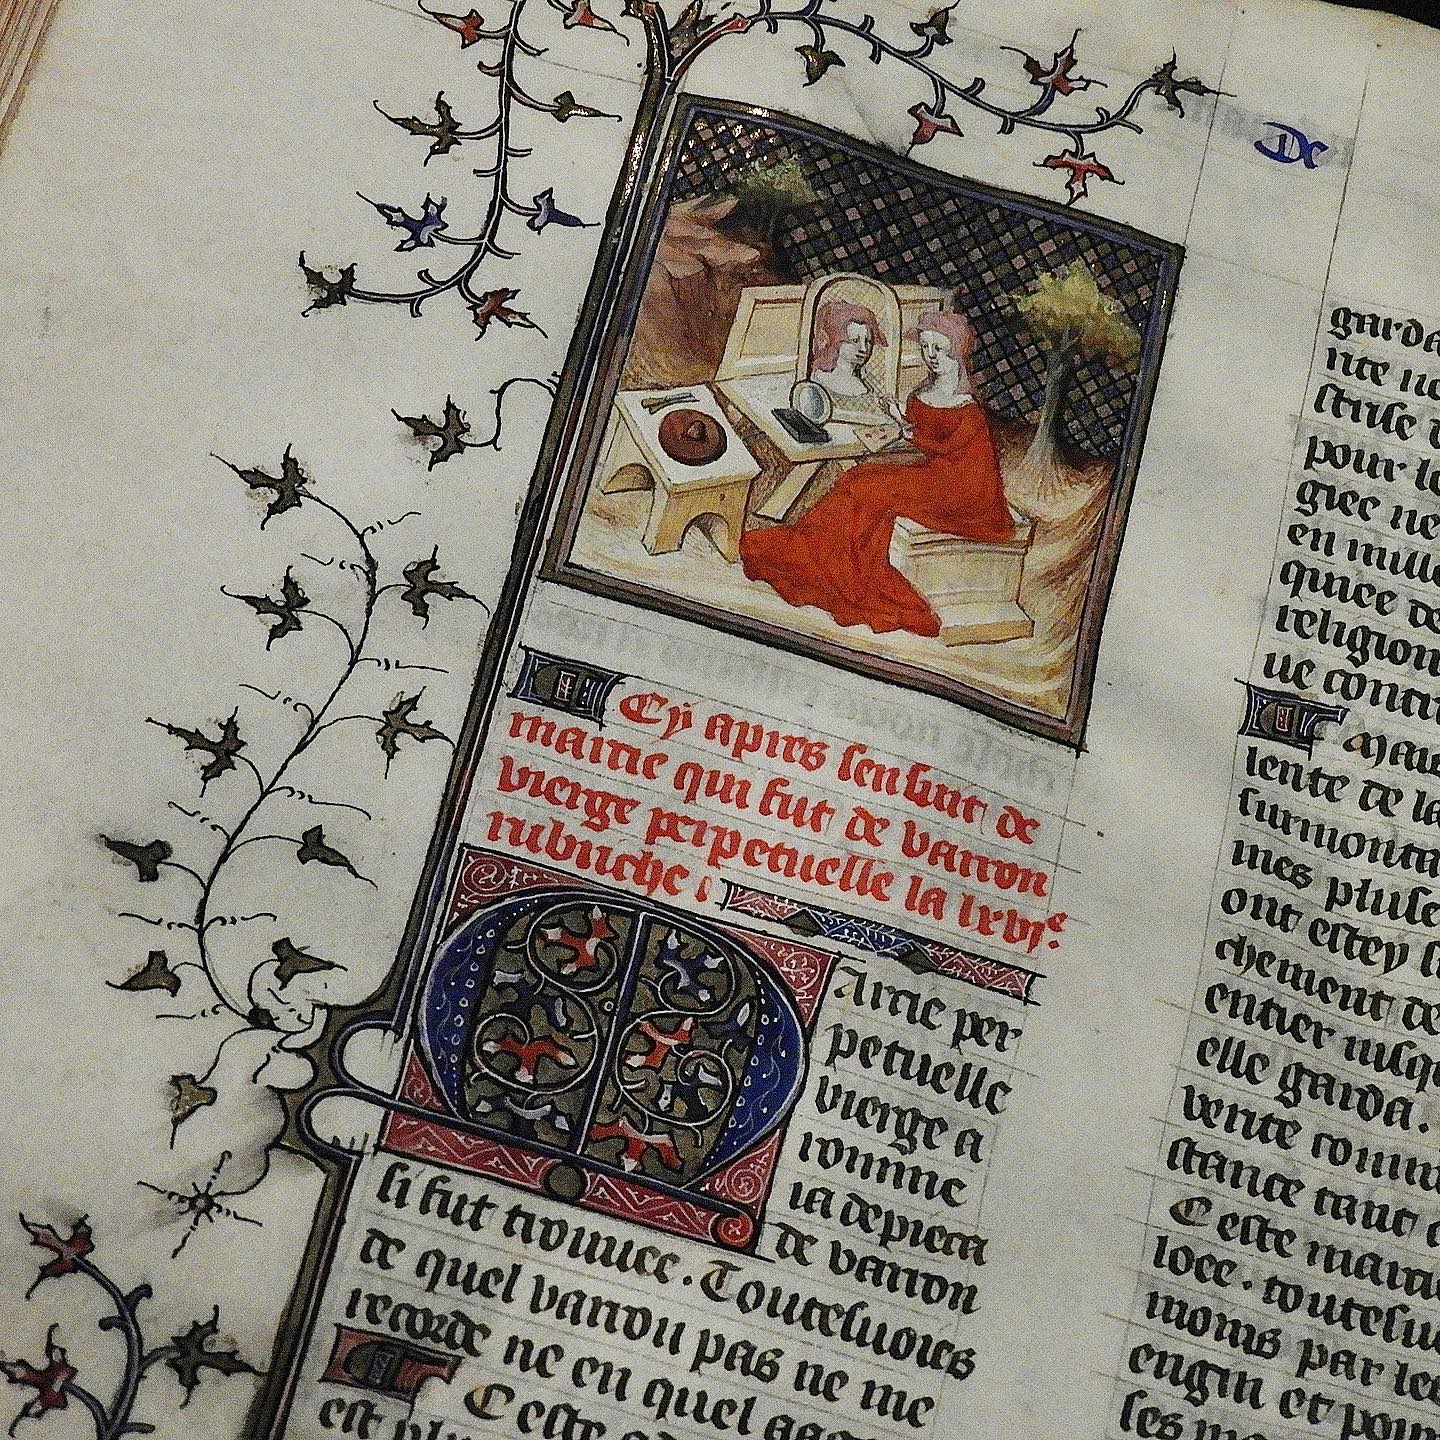 De
Cy apres sensuit de
marcie qui fut de varron
vierge perpetuelle la lxvie.
rubriche
Marcie per
petuelle
vierge a
romme
ia de pieca
si fut trouuee. Toutesuoies de varron
de quel varron pas ne me
recorde ne en quel aage
Ceste
est plus
garda
nte no
stise
pour lo
giee ne
en mille
quiee de
religion
ue conti
Mais
lente de la
surmonta
mes pluse
ont estey si
chement de
entier iusqu
elle garda.
vente comm
stance tant
Ceste marci
loee. toutesuo
moins par les
engin et pour
ses ma